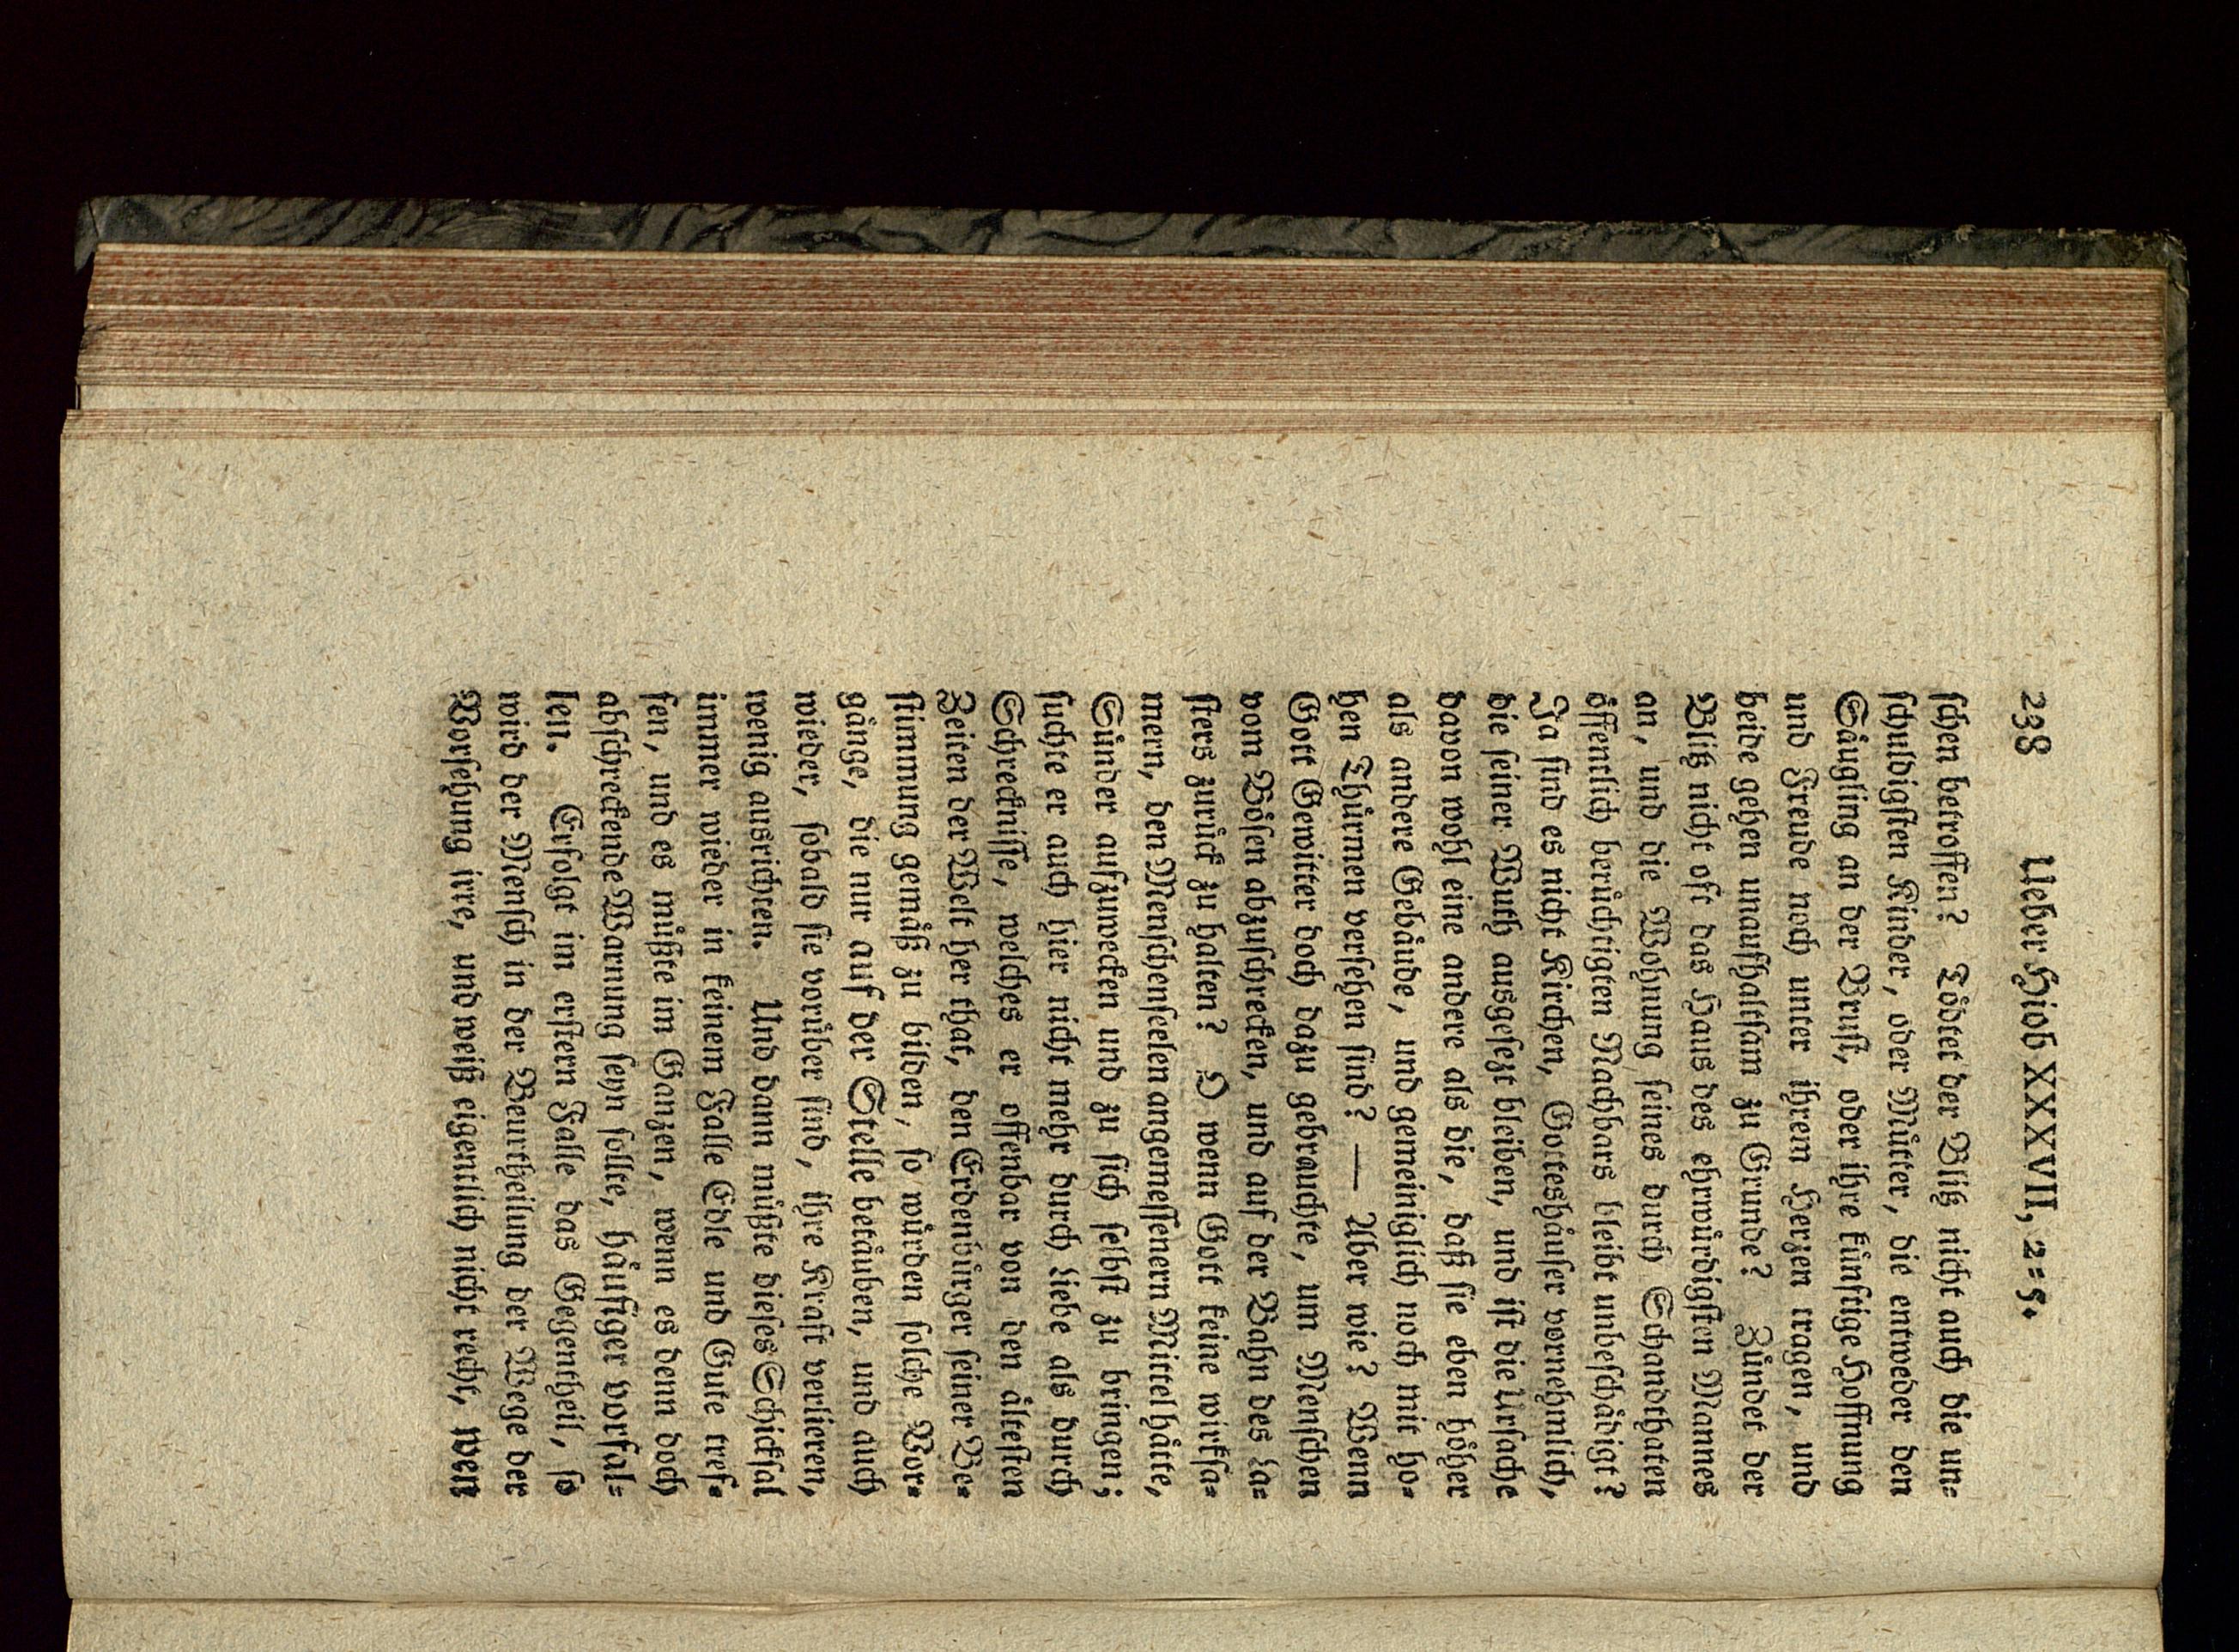 238 Ueber Hiob XXXVII, 2=5.
ſchen betroffen? Tödtet der Blitz nicht auch die un=
ſchuldigſten Kinder, oder Mütter, die entweder den
Säugling an der Bruſt, oder ihre künftige Hoffnung
und Freude noch unter ihrem Herzen tragen, und
beide gehen unaufhaltſam zu Grunde? Zündet der
Blitz nicht oft das Haus des ehrwürdigſten Mannes
an, und die Wohnung ſeines durch Schandthaten
öffentlich berüchtigten Nachbars bleibt unbeſchädigt?
Ja ſind es nicht Kirchen, Gotteshäuſer vornehmlich,
die ſeiner Wuth ausgeſezt bleiben, und iſt die Urſache
davon wohl eine andere als die, daß ſie eben höher
als andere Gebäude, und gemeiniglich noch mit ho=
hen Thürmen verſehen ſind? — Aber wie? Wenn
Gott Gewitter doch dazu gebrauchte, um Menſchen
vom Böſen abzuſchrecken, und auf der Bahn des La=
ſters zurück zu halten? O wenn Gott keine wirkſa=
mern, den Menſchenſeelen angemeſſenern Mittel hätte,
Sünder aufzuwecken und zu ſich ſelbſt zu bringen;
ſuchte er auch hier nicht mehr durch Liebe als durch
Schreckniſſe, welches er offenbar von den älteſten
Zeiten der Welt her that, den Erdenbürger ſeiner Be=
ſtimmung gemäß zu bilden, ſo würden ſolche Vor=
gänge, die nur auf der Stelle betäuben, und auch
wieder, ſobald ſie vorüber ſind, ihre Kraft verlieren,
wenig ausrichten. Und dann müßte dieſes Schickſal
immer wieder in keinem Falle Edle und Gute tref=
fen, und es müßte im Ganzen, wenn es denn doch
abſchreckende Warnung ſeyn ſollte, häufiger vorfal=
len. Erfolgt im erſtern Falle das Gegentheil, ſo
wird der Menſch in der Beurtheilung der Wege der
Vorſehung irre, und weiß eigentlich nicht recht, wen